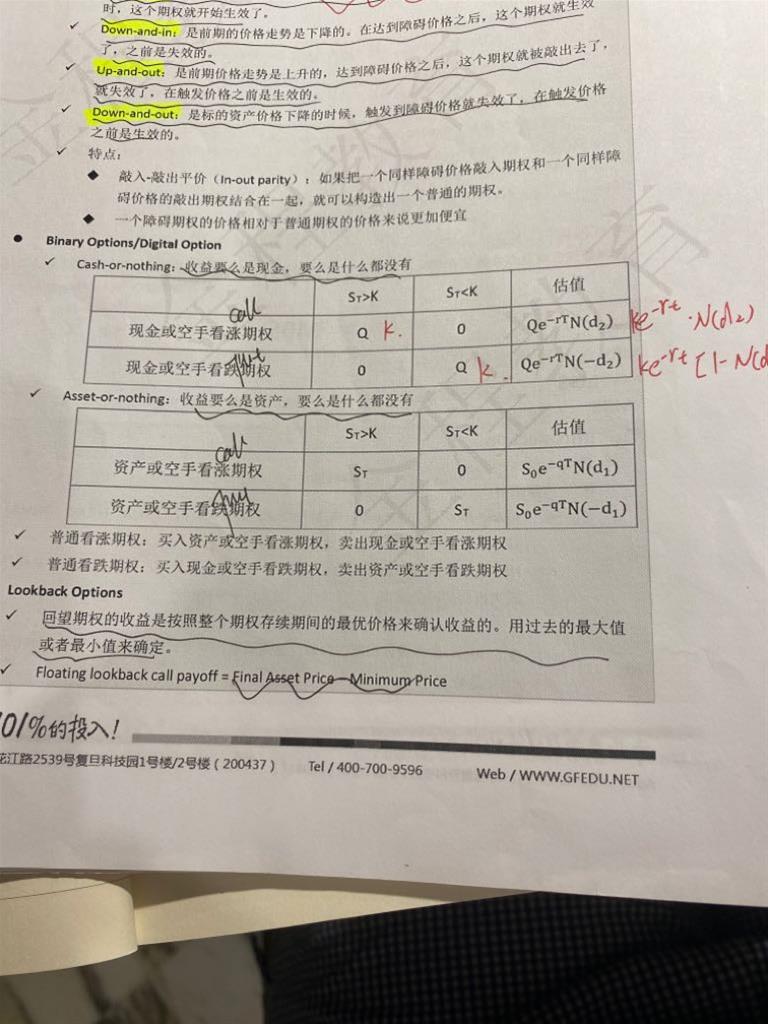 时，这个期权就开始生效了。
✓ Down-and-in：是前期的价格走势是下降的。在达到障碍价格之后，这个期权就生效
了，之前是失效的。
✓ Up-and-out：是前期价格走势是上升的，达到障碍价格之后，这个期权就被敲出去了，
就失效了，在触发价格之前是生效的。
✓ Down-and-out：是标的资产价格下降的时候，触发到障碍价格就失效了，在触发价格
之前是生效的。
✓ 特点：
◆ 敲入-敲出平价（In-out parity）：如果把一个同样障碍价格敲入期权和一个同样障
碍价格的敲出期权结合在一起，就可以构造出一个普通的期权。
◆ 一个障碍期权的价格相对于普通期权的价格来说更加便宜
● Binary Options/Digital Option
✓ Cash-or-nothing：收益要么是现金，要么是什么都没有
S_T>K S_T<K 估值
call
现金或空手看涨期权 Q K. 0 Qe^{-rT}N(d₂) ke^{-rt}·N(d₂)
put
现金或空手看跌期权 0 Q k. Qe^{-rT}N(-d₂) ke^{-rt}[1-N(d
✓ Asset-or-nothing：收益要么是资产，要么是什么都没有
S_T>K S_T<K 估值
call
资产或空手看涨期权 S_T 0 S₀e^{-qT}N(d₁)
put
资产或空手看跌期权 0 S_T S₀e^{-qT}N(-d₁)
✓ 普通看涨期权：买入资产或空手看涨期权，卖出现金或空手看涨期权
✓ 普通看跌期权：买入现金或空手看跌期权，卖出资产或空手看跌期权
Lookback Options
✓ 回望期权的收益是按照整个期权存续期间的最优价格来确认收益的。用过去的最大值
或者最小值来确定。
✓ Floating lookback call payoff = Final Asset Price – Minimum Price
101%的投入！
花江路2539号复旦科技园1号楼/2号楼（200437） Tel / 400-700-9596 Web / WWW.GFEDU.NET